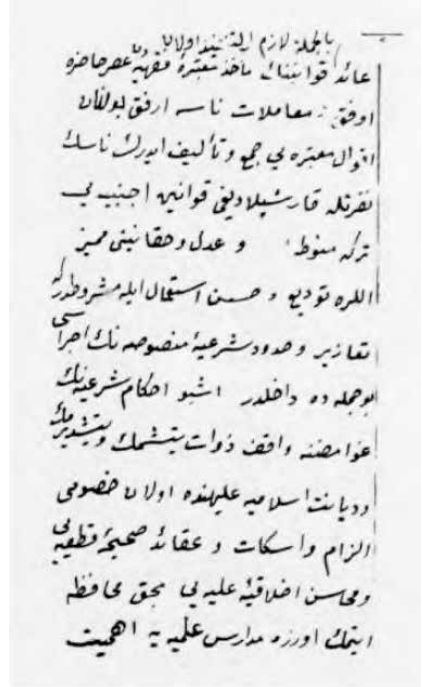 بالجمله لازم التنفيذ اولان
عائد قوانينك مأخذ معتبرهٔ فقهيه‌دن عصر حاضره
اوفق و معاملات ناسه ارفق بولنان
اقوال معتبره يى جمع و تأليف ايدرك ناسك
نفرتله قارشيلاديغى قوانين اجنبيه يى
تركه منوط و عدل و حقانيتى مميز
اللره توديع و حسن استعمال ايله مشروطدركه
تعازير و حدود شرعيهٔ منصوصه نك اجراسى
بوجمله ده داخلدر اشبو احكام شرعيه نك
غوامضنه واقف ذوات يتشمك و يتشديرمك
و ديانت اسلاميه عليهنده اولان خصومى
الزام و اسكات و عقائد صحيحهٔ قطعيه يى
و محاسن اخلاقيهٔ عليه يى بحق محافظه
ايتمك اوزره مدارس علميه يه اهميت